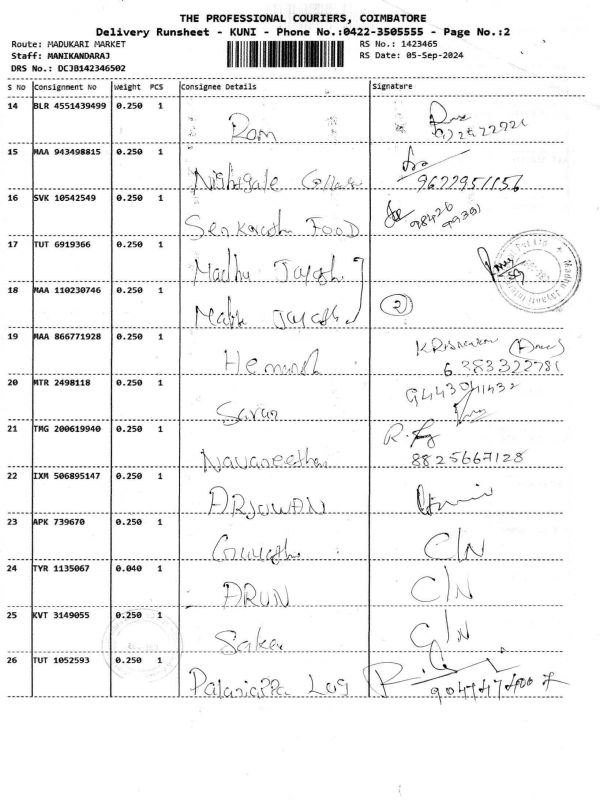 THE PROFESSIONAL COURIERS, COIMBATORE
Delivery Runsheet - KUNI - Phone No.:0422-3505555 - Page No.:2
Route: MADUKARI MARKET
RS No.: 1423465
Staff: MANIKANDARAJ
RS Date: 05-Sep-2024
DRS No.: DCJB142346502
S No Consignment No Weight PCS Consignee Details Signature
14 BLR 4551439499 0.250 1 Ram
15 MAA 943498815 0.250 1
9677951156
16 SVK 10542549 0.250 1 FOOD
98426
99301
17 TUT 6919366 0.250 1 Madhu Jayash
18 MAA 110230746 0.250 1 Madhu Jayash 2
19 MAA 866771928 0.250 1 Hemanth
6383322781
20 MTR 2498118 0.250 1 Saran
21 TMG 200619940 0.250 1 Navaneethan
8825667128
22 IXM 506895147 0.250 1 ARJUWAN
23 APK 739670 0.250 1 C/N
24 TYR 1135067 0.040 1 ARUN C/N
25 KVT 3149055 0.250 1 C/N
26 TUT 1052593 0.250 1 Palaniappa Log